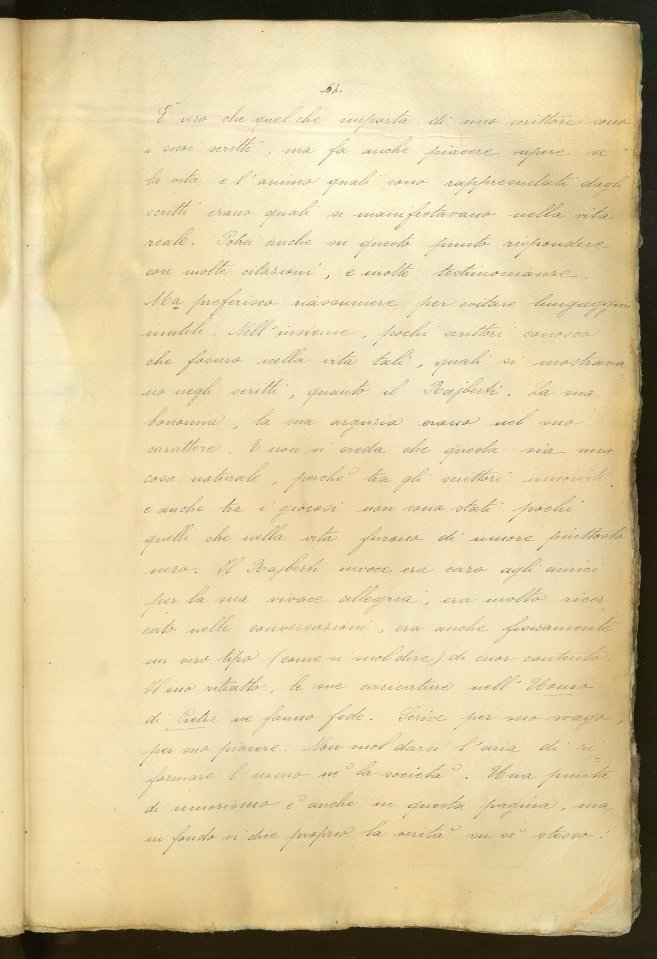 -64-
È vero che quel che importa di uno scrittore sono
i suoi scritti, ma fa anche piacere sapere se
la vita e l'animo quali sono rappresentati dagli
scritti erano quali si manifestavano nella vita
reale. Potrei anche su questo punto rispondere
con molte citazioni, e molte testimonianze.
Ma preferisco riassumere per evitare lungaggini
inutili. Nell'insieme, pochi scrittori conosco
che fossero nella vita tali, quali si mostrava-
no negli scritti, quanto il Rajberti. La sua
bonomia, la sua arguzia erano nel suo
carattere. E non si creda che questa sia una
cosa naturale, perchè tra gli scrittori umoristi
e anche tra i giocosi non sono stati pochi
quelli che nella vita furono di umore piuttosto
nero. Il Rajberti invece era caro agli amici
per la sua vivace allegria, era molto ricer-
cato nelle conversazioni, era anche fisicamente
un vero tipo (come si suol dire) di cuor contento.
Il suo ritratto, le sue caricature nell'Uomo
di Pietra ne fanno fede. Scrive per suo svago,
per suo piacere. Non vuol darsi l'aria di ri-
formare l'uomo nè la società. Una punta
di umorismo è anche in questa pagina, ma
in fondo vi dice proprio la verità su sè stesso: